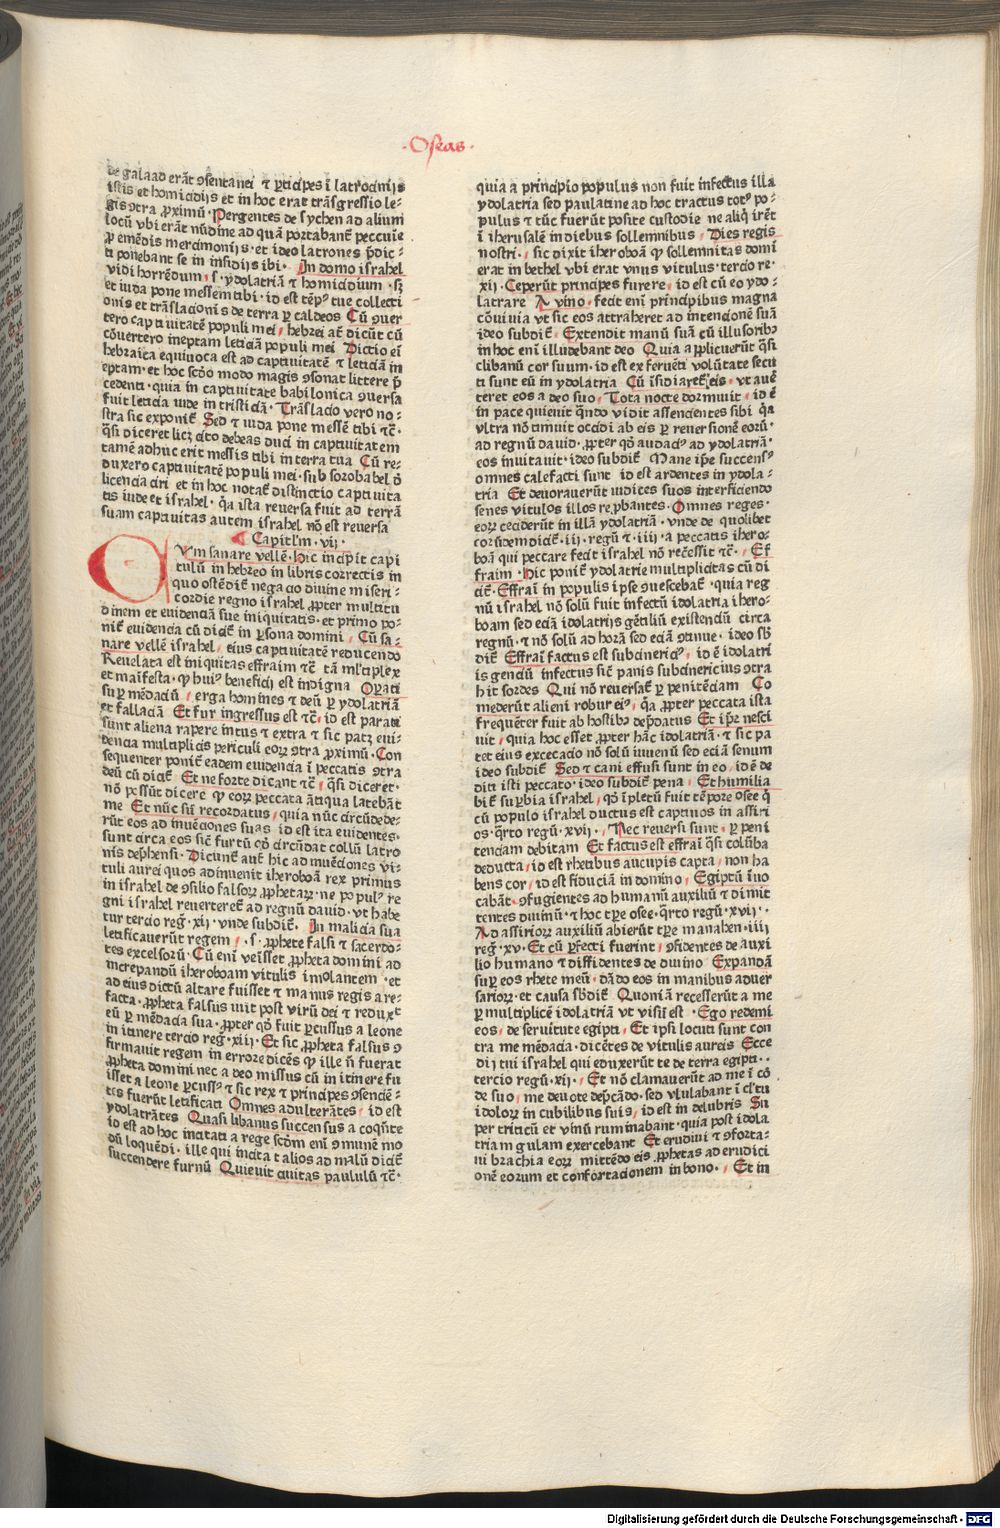 ·Oseas·
de galaad erāt ↄsentanei ⁊ p̄ticipes ī latrocinijs
istis et homicidijs et in hoc erat trāsgressio le⸗
gis ↄtra ꝓximū · Pergentes de sychen ad alium
locū vbi erāt nūdine ad quā portabant̄ peccuie
ꝓ emēdis mercimonijs · et ideo latrones p̄dic⸗
ti ponebant se in insidijs ibi · In domo israhel
vidi horrēdum · s · ydolatriā ⁊ homicidium · sꝫ
et iuda pone messem tibi · id est tēpꝰ tue collecti
onis et trāslacionis de terra ꝑ caldeos Cū ↄuer
tero captiuitatē populi mei · hebrei at̄ dicūt cū
cōuertero ineptam leticiā populi mei Dictio ei̅
hebraica equiuoca est ad captiuitatē ⁊ leticiā in
eptam · et hoc scd̄o modo magis ↄsonat littere p̄
cedenti · quia in captiuitate babilonica ↄuersa
fuit leticia iude in tristiciā · Trāslacio vero no⸗
stra sic exponit̄ Sed ⁊ iuda pone messē tibi ⁊c̄ ·
q̄si diceret licꝫ cito debeas duci in captiuitatem
tamē adhuc erit messis tibi in terra tua Cū re⸗
duxero captiuitatē populi mei · sub sorobabel d̄
licencia ciri et in hoc notat̄ distinctio captiuita
tis iude et israhel · q̄a ista reuersa fuit ad terrā
suam captiuitas autem israhel nō est reuersa
Capitl'm · vij ·
Vm sanare vellē · hic incipit capi
tulū in hebreo in libris correctis in
quo ostēdit̄ negacio diuine miseri⸗
cordie regno israhel ꝓpter multitu
dinem et euidenciā sue iniquitatis · et primo po⸗
nit̄ euidencia cū dicit̄ in ꝑsona domini · Cū sa⸗
nare vellē israhel · eius captiuitatē reducendo
Reuelata est iniquitas effraim ⁊c̄ tā ml'tiplex
et maifesta · ꝙ huiꝰ beneficij est indigna Oꝑati
suꝑ mēdaciū · erga homines ⁊ deū ꝑ ydolatriā
et fallaciā Et fur ingressus est ⁊c̄ · id est parati
sunt aliena rapere intus ⁊ extra ⁊ sic patꝫ eui⸗
dencia multiplicis periculi eoꝝ ↄtra ꝓximū · Con
sequenter ponit̄ eadem euidencia ī peccatis ↄtra
deū cū dicit̄ Et ne forte dicant ⁊c̄ · q̄si diceret ·
nō possūt dicere ꝙ eoꝝ peccata ātiqua latebāt
me Et nūc sūt recordatus · quia nūc circūdede⸗
rūt eos ad inuēciones suas id est ita euidentes ·
sunt circa eos sic̄ furtū cō circūdat collū latro
nis dep̄hensi · Dicunt̄ aut̄ hic ad īuēciones vi⸗
tuli aurei quos adinuenit iheroboā rex primus
in israhel de ↄsilio falsoꝝ ꝓphetaꝝ · ne populꝰ re
gni israhel reuerteret̄ ad regnū dauid · vt habe
tur tercio reg̅ · xij · vnde subdit̄ · In malicia sua
letificauerūt regem · s · ꝓphete falsi ⁊ sacerdo⸗
tes excelsorū · Cū eni veīsset ꝓpheta domini ad
increpandū iheroboam vitulis īmolantem · et
ad eius dictū altare fuisset ⁊ manus regis are⸗
facta · ꝓpheta falsus iuit post virū dei ⁊ reduxt̄
eū ꝑ mēdacia sua · ꝓpter qd̄ fuit ꝑcussus a leone
in itinere tercio reg̅ · xiij · Et sic ꝓpheta falsus ↄ
firmauit regem in errore dicēs ꝙ ille n̄ fuerat
ꝓpheta domini nec a deo missus cū in itinere fu
isset a leone ꝑcussꝰ ⁊ sic rex ⁊ principes ↄsencie⸗
tes fuerūt letificati Omnes adulterātes · id est
ydolatrātes Quasi libanus succensus a coquēte
id est ad hoc incitati a rege scdm eni ↄmunē mo
dū loquēdi · ille qui incitat alios ad malū dicit̄
succendere furnū Quieuit ciuitas paululū ⁊c̄ ·
quia a principio populus non fuit infectus illa
ydolatria sed paulatine ad hoc tractus totꝰ po⸗
pulus ⁊ tūc fuerūt posite custodie ne aliq̄ irēt
ī iherusalē in diebus sollemnibus · Dies regis
nostri · sic dixit iheroboā ꝙ sollemnitas domī
erat in bethel vbi erat vnus vitulus · tercio re⸗
xij · Ceperūt principes furere · id est cū eo ydo⸗
latrare A vino · fecit eni principibus magna
cōuiuia vt sic eos attraheret ad intencionē suā
ideo subdit̄ · Extendit manū suā cū illusoribꝫ
in hoc eni illudebant deo Quia applicuerūt q̄si
clibanū cor suum · id est ex feruēti volūtate secu
ti sunt eū in ydolatria Cū īsidiaret̄ eis · vt auē
teret eos a deo suo · Tota nocte dormuit · id ē
in pace quieuit q̄ndo vidit assencientes sibi q̄a
vltra nō timuit occidi ab eis ꝑ reuersionē eorū ·
ad regnū dauid · ꝓpter qd̄ audaciꝰ ad ydolatriā ·
eos inuitauit · ideo subdit̄ Mane ip̄e succensꝰ
omnes calefacti sunt id est ardentes in ydola⸗
tria Et deuorauerūt iudices suos interficiendo
senes vitulos illos rep̄bantes · Omnes reges ·
eoꝝ ceciderūt in illā ydolatriā · vnde de quolibet
eorūdem dicit̄ · iij · regū ⁊ · iiij · a peccatis ihero⸗
boā qui peccare fecit israhel nō recessit ⁊c̄ · Ef
fraim · hic ponit̄ ydolatrie multiplicitas cū di
cit̄ · Effraī in populis ipse ↄmiscebat̄ · quia reg
nū israhel nō solū fuit infectū idolatria ihero⸗
boam sed eciā idolatrijs gētiliū existenciū circa
regnū · ⁊ nō solū ad horā sed eciā ↄtinue · ideo sb̄
dit̄ Effraī factus est subcinericꝰ · id ē idolatri
is genciū infectus sic̄ panis subcinericius ↄtra
hit sordes Qui nō reuersat̄ ꝑ penitēciam Co
mederūt alieni robur eiꝰ · q̄a ꝓpter peccata ista
frequēter fuit ab hostibꝫ dep̄datus Et ip̄e nesci
uit · quia hoc esset ꝓpter hāc idolatriā · ⁊ sic pa
tet eius excecacio nō solū iuuenū sed eciā senum
ideo subdit̄ Sed ⁊ cani effusi sunt in eo · id ē de
diti isti peccato · ideo subdit̄ pena · Et humilia
bit̄ suꝑbia israhel · qd̄ īpletū fuit tēpore osee q̄
cū populo israhel ductus est captiuos in assiri
os · q̄rto regū · xvij · Nec reuersi sunt · ꝑ peni
tenciam debitam Et factus est effraī q̄si colūba
deducta · id est rhetibus aucupis capta · non ha
bens cor · id est fiduciā in domino · Egiptū īuo
cabāt · ↄfugientes ad humanū auxiliū ⁊ dimit
tentes diuinū · ⁊ hoc tꝑe osee · q̄rto regū · xvij · ·
Ad assirioꝝ auxiliū abierūt tꝑe manahen · iiij
reg̅ · xv · Et cū ꝑfecti fuerint · ↄfidentes de auxi
lio humano ⁊ diffidentes de diuino Expandā
suꝑ eos rhete meū · dādo eos in manibus aduer
sarioꝝ · et causa sb̄dit̄ Quoniā recesserūt a me
ꝑ multiplicē idolatriā vt visū est · Ego redemi
eos · de seruitute egipti · Et ipsi locuti sunt con
tra me mēdacia · dicētes de vitulis aureis Ecce
dij tui israhel qui eduxerūt te de terra egipti · ·
tercio regū · xij · Et nō clamauerūt ad me ī cō
de suo · me deuote dep̄cādo · sed vlulabant ī cl'tu
idoloꝝ in cubilibus suis · id est in delubris Su
per triticū et vinū ruminabant · quia post idola
triam gulam exercebant Et erudiui ⁊ ↄforta⸗
ui brachia eoꝝ mittēdo eis ꝓphetas ad erudici
onē eorum et confortacionem in bono · Et in
Digitalisierung gefördert durch die Deutsche Forschungsgemeinschaft · DFG